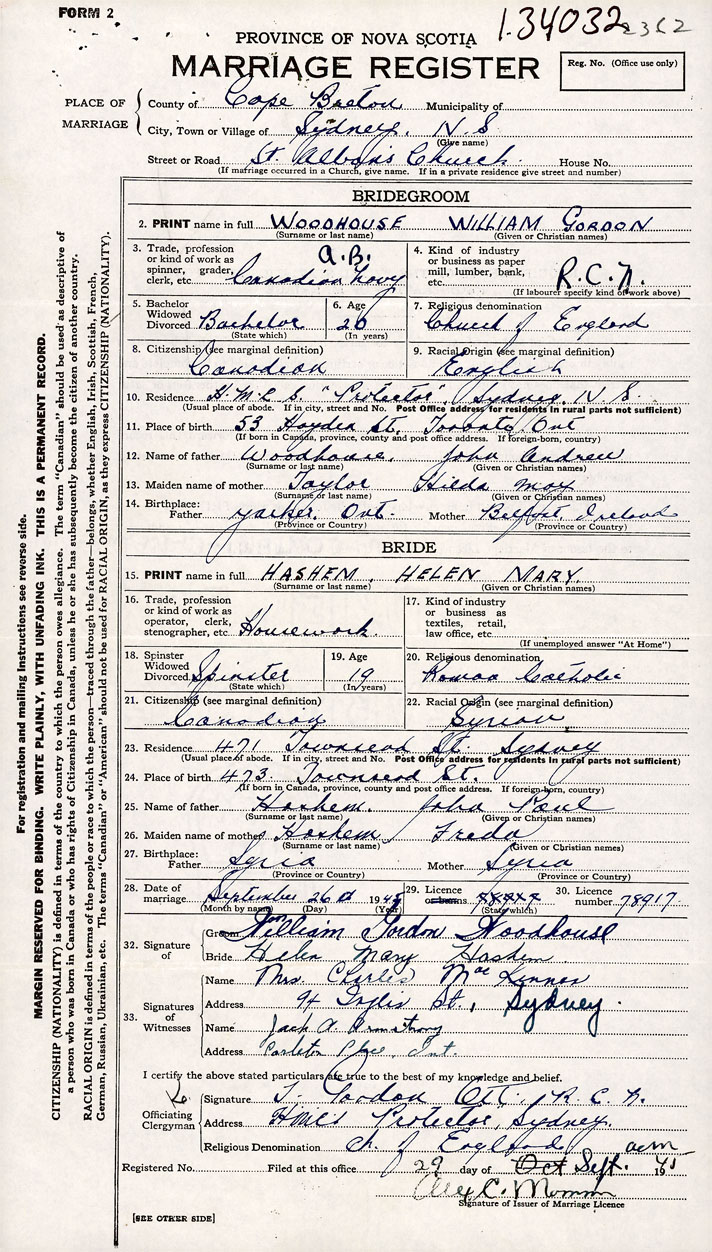 FORM 2
1.34032 2362
PROVINCE OF NOVA SCOTIA
MARRIAGE REGISTER
Reg. No. (Office use only)
PLACE OF MARRIAGE
County of Cape Breton Municipality of
City, Town or Village of Sydney, N.S
(Give name)
Street or Road St. Alban's Church. House No.
(If marriage occurred in a Church, give name. If in a private residence give street and number)
BRIDEGROOM
2. PRINT name in full WOODHOUSE WILLIAM GORDON
(Surname or last name) (Given or Christian names)
3. Trade, profession or kind of work as spinner, grader, clerk, etc. A.B. Canadian Navy
4. Kind of industry or business as paper mill, lumber, bank, etc. R.C.N.
(If labourer specify kind of work above)
5. Bachelor Widowed Divorced Bachelor
(State which)
6. Age 20
(In years)
7. Religious denomination Church of England
8. Citizenship (see marginal definition) Canadian
9. Racial Origin (see marginal definition) English
10. Residence H.M.C.S. "Protector", Sydney, N.S.
(Usual place of abode. If in city, street and No. Post Office address for residents in rural parts not sufficient)
11. Place of birth 53 Hayden St. Toronto, Ont
(If born in Canada, province, county and post office address. If foreign-born, country)
12. Name of father Woodhouse, John Andrew
(Surname or last name) (Given or Christian names)
13. Maiden name of mother Taylor Hilda May
(Surname or last name) (Given or Christian names)
14. Birthplace: Father Yarker, Ont. Mother Belfast, Ireland
(Province or Country) (Province or Country)
BRIDE
15. PRINT name in full HASHEM, HELEN MARY
(Surname or last name) (Given or Christian names)
16. Trade, profession or kind of work as operator, clerk, stenographer, etc. Housework.
17. Kind of industry or business as textiles, retail, law office, etc.
(If unemployed answer "At Home")
18. Spinster Widowed Divorced Spinster
(State which)
19. Age 19
(In years)
20. Religious denomination Roman Catholic
21. Citizenship (see marginal definition) Canadian
22. Racial Origin (see marginal definition) Syrian
23. Residence 471 Townsend St. Sydney
(Usual place of abode. If in city, street and No. Post Office address for residents in rural parts not sufficient)
24. Place of birth 473 Townsend St.
(If born in Canada, province, county and post office address. If foreign-born, country)
25. Name of father Hashem, John Paul
(Surname or last name) (Given or Christian names)
26. Maiden name of mother Hashem Freda
(Surname or last name) (Given or Christian names)
27. Birthplace: Father Syria Mother Syria
(Province or Country) (Province or Country)
28. Date of marriage September 26 1945
(Month by name) (Day) (Year)
29. Licence or banns
(State which)
30. Licence number 78917
32. Signature of
Groom William Gordon Woodhouse
Bride Helen Mary Hashem
33. Signatures of Witnesses
Name Mrs. Charles MacKinnon
Address 94 Inglis St., Sydney.
Name Jack A Armstrong
Address Carleton Place, Ont.
I certify the above stated particulars are true to the best of my knowledge and belief.
Officiating Clergyman
Signature T. Gordon R.C.N.
Address Protector, Sydney.
Religious Denomination Ch. of England
Registered No. Filed at this office 29 day of Oct Sept. 1945
Alex C.
Signature of Issuer of Marriage Licence
[SEE OTHER SIDE]
For registration and mailing instructions see reverse side.
MARGIN RESERVED FOR BINDING. WRITE PLAINLY, WITH UNFADING INK. THIS IS A PERMANENT RECORD.
CITIZENSHIP (NATIONALITY) is defined in terms of the country to which the person owes allegiance. The term "Canadian" should be used as descriptive of
a person who was born in Canada or who has rights of Citizenship in Canada, unless he or she has subsequently become the citizen of another country.
RACIAL ORIGIN is defined in terms of the people or race to which the person—traced through the father—belongs, whether English, Irish, Scottish, French,
German, Russian, Ukrainian, etc. The terms "Canadian" or "American" should not be used for RACIAL ORIGIN, as they express CITIZENSHIP (NATIONALITY).